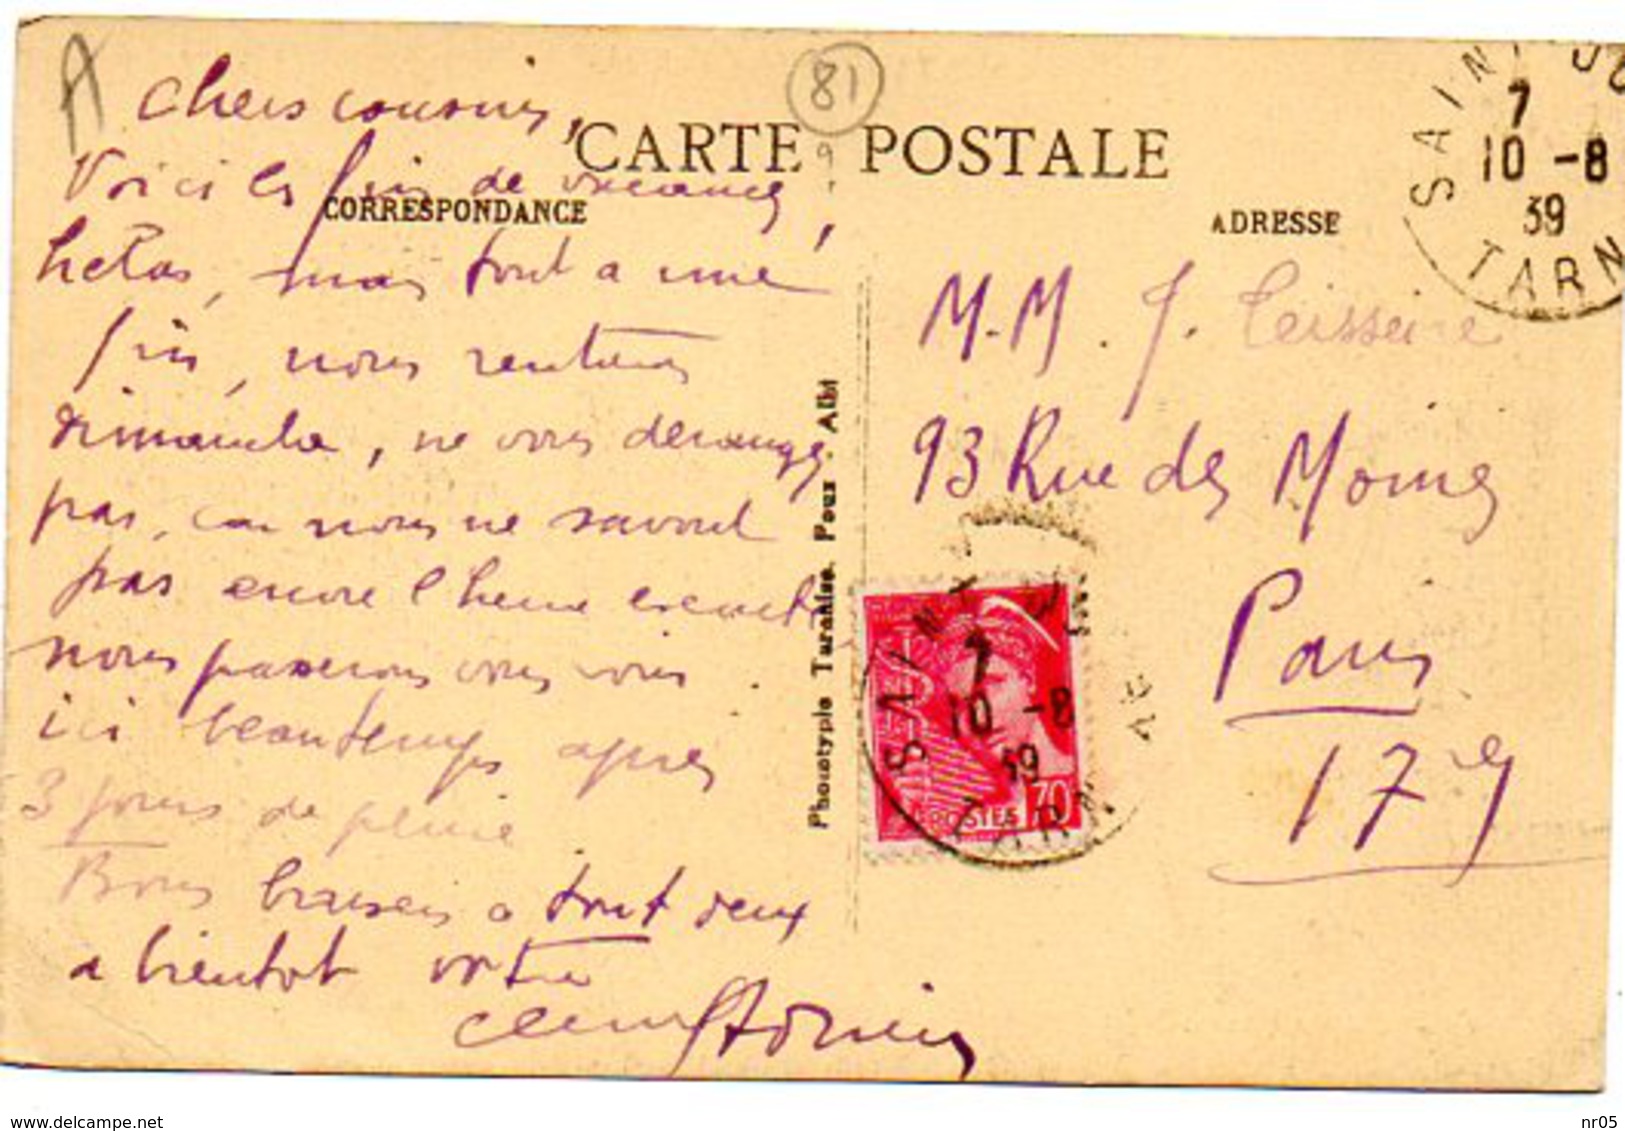 A
81
9
CARTE POSTALE
CORRESPONDANCE
ADRESSE
SAINT
7
10 -8
39
TARN
Chers cousins,
Voici les fins de vacances,
helas, mais tout a une
fin, nous rentrons
dimanche, ne vous derangez
pas, car nous ne savont
pas encore l'heure exacte
nous passerons vous voir.
ici beautemps apres
3 jours de pluie
Bons baisers a tout deux
a bientot votre
M.M. J. Teisseire
93 Rue des Moines
Paris
17e
Phototypie Tarnaise. Poux . Albi
SAINT
7
10 -8
39
TARN
POSTES 70
delcampe.net
nr05